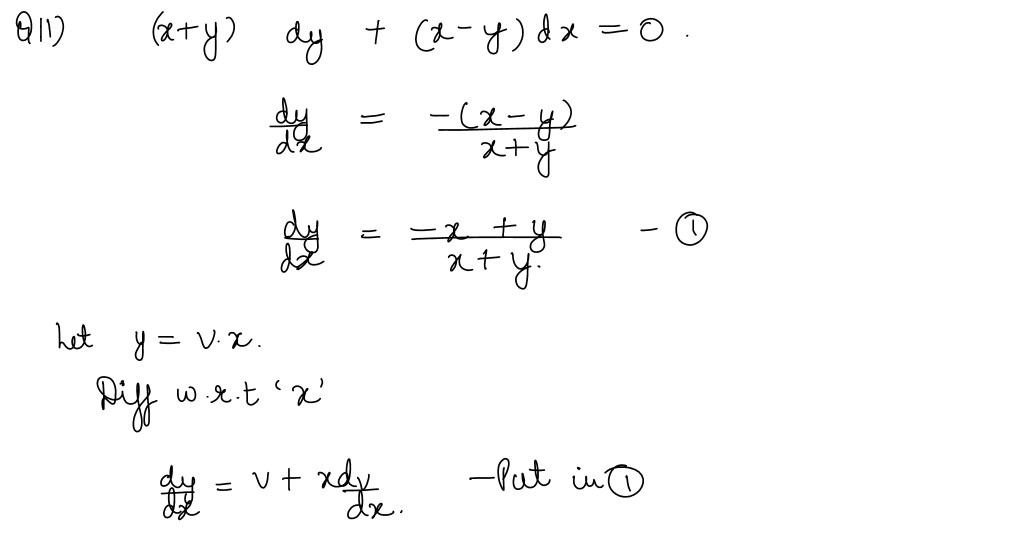 Q11) (x+y) dy + (x-y) dx = 0.
dy/dx = -(x-y)/x+y
dy/dx = -x + y/x+y. - ①
Let y = v.x.
Diff w.r.t 'x'
dy/dx = v + xdv/dx. - Put in ①